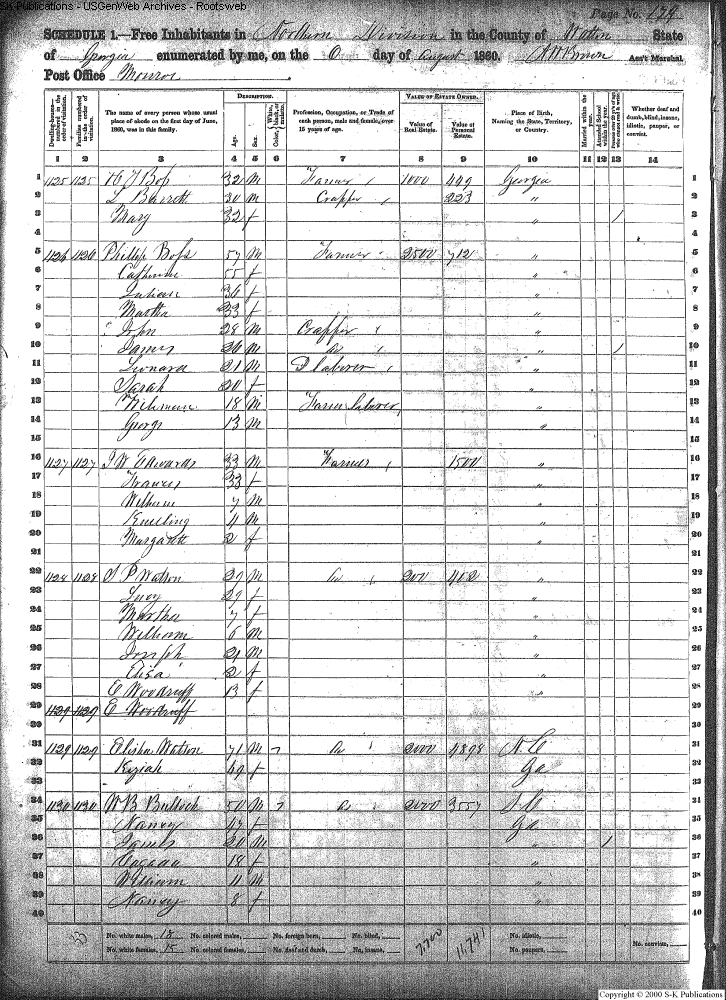 S-K Publications - USGenWeb Archives - Rootsweb
Page No. 174
SCHEDULE 1.—Free Inhabitants in Northern Division in the County of Walton State
of Georgia enumerated by me, on the day of August 1860. Ass't Marshal
Post Office Monroe
Dwelling-houses—numbered in the order of visitation.
Families numbered in the order of visitation.
The name of every person whose usual place of abode on the first day of June, 1860, was in this family.
DESCRIPTION.
Age.
Sex.
Color, White, black, or mulatto.
Profession, Occupation, or Trade of each person, male and female, over 15 years of age.
VALUE OF ESTATE OWNED.
Value of Real Estate.
Value of Personal Estate.
Place of Birth, Naming the State, Territory, or Country.
Married within the year.
Attended School within the year.
Persons over 20 y'rs of age who cannot read & write.
Whether deaf and dumb, blind, insane, idiotic, pauper, or convict.
1 2 3 4 5 6 7 8 9 10 11 12 13 14
1 1125 1125 32 M Farmer 1000 499 Georgia 1
2 L Barrett 30 M Crapper 223 " 2
3 Mary 32 f " / 3
4 4
5 1126 1126 Phillip Boss 57 M Farmer 2500 712 " 5
6 Catherine 55 f " 6
7 Julian 36 f " 7
8 Martha 33 f " 8
9 John 28 M Crapper " 9
10 James 26 M " / 10
11 Leonard 21 M D laborer " 11
12 Sarah 20 f " 12
13 18 M Farm laborer " 13
14 George 13 M " 14
15 15
16 1127 1127 J W Edwards 33 M Farmer 1500 " 16
17 Frances 33 f " 17
18 7 M " 18
19 4 M " 19
20 Margarett 2 f " 20
21 21
22 1128 1128 S P Watson 29 M 200 402 " 22
23 Lucy 29 f " 23
24 Martha 7 f " 24
25 William 6 M " 25
26 Joseph 4 M " 26
27 Eliza 2 f " 27
28 E Woodruff 13 f " 28
29 1129 1129 E Woodruff 29
30
31 1129 1129 Elisha Watson 71 M 2000 4898 N. C 31
32 Keziah 49 f Ga 32
33 33
34 1130 1130 W B Bullock 50 M 2000 3557 S. C 34
35 Nancy f Ga 35
36 James 20 M " / 36
37 18 f " 37
38 William 11 M " 38
39 Nancy 8 f " 39
40 40
33 No. white males, 18 No. colored males, No. foreign born, No. blind, 7700 11.741 No. idiotic,
No. white females, 15 No. colored females, No. deaf and dumb, No. insane, No. paupers, No. convicts,
Copyright © 2000 S-K Publications